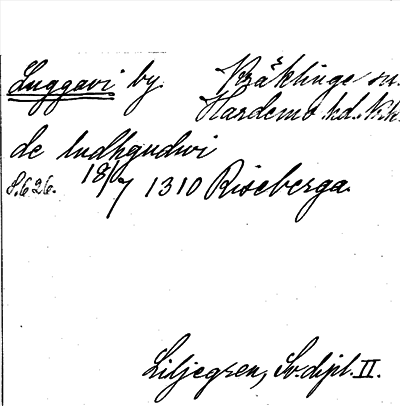 Luggavi by. Kräklinge sn.
Hardemo hd. N.k.
de ludhgudwi
S. 626. 18/7 1310 Riseberga.
Liljegren, Sv. dipl. II.